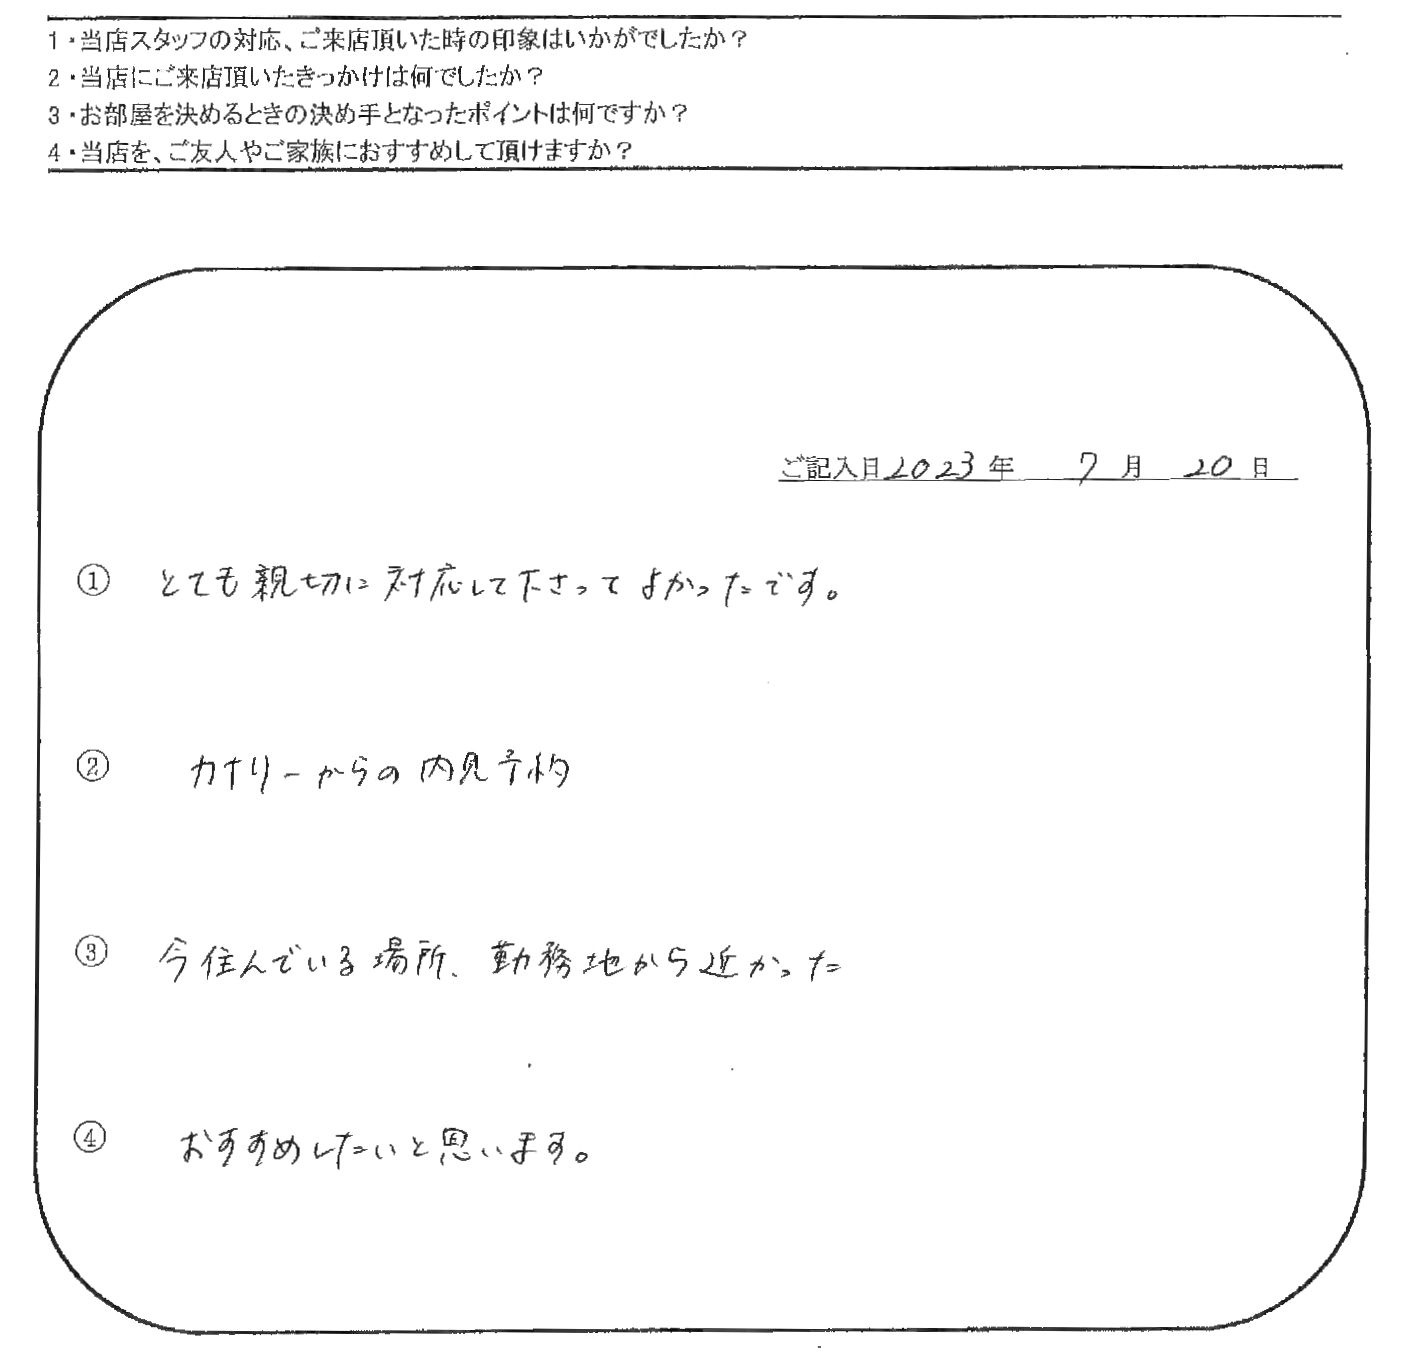 1・当店スタッフの対応、ご来店頂いた時の印象はいかがでしたか？
2・当店にご来店頂いたきっかけは何でしたか？
3・お部屋を決めるときの決め手となったポイントは何ですか？
4・当店を、ご友人やご家族におすすめして頂けますか？
ご記入日2023年 7月 20日
① とても親切に対応して下さってよかったです。
② カナリーからの内見予約
③ 今住んでいる場所、勤務地から近かった
④ おすすめしたいと思います。